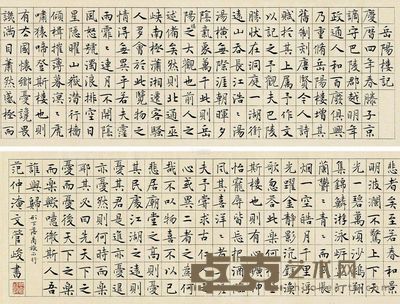 岳陽樓記
慶曆四年春滕子京
謫守巴陵郡越明年
政通人和百廢俱興
乃重脩岳陽樓增其
舊制刻唐賢今人詩
賦於其上屬予作文
以記之予觀夫巴陵
勝狀在洞庭一湖銜
遠山吞長江浩浩湯
湯橫無際涯朝暉夕
陰氣象萬千此則岳
陽之大觀也前人之
述備矣然則北通巫
峽南極瀟湘遷客騷
人多會於此覽物之
情得無異乎若夫霪
雨霏霏連月不開陰
風怒號濁浪排空日
星隱曜山嶽潛形檣
傾楫摧薄暮冥冥虎
嘯猿啼登斯樓也則
有去國懷鄉憂讒畏
譏滿目蕭然感極而
悲者矣至若春和景
明波瀾不驚上下天
光一碧萬頃沙鷗翔
集錦鱗游泳岸芷汀
蘭鬱鬱青青而或長
煙一空皓月千里浮
光躍金靜影沉璧漁
歌互答此樂何極登
斯樓也則有心曠神
怡寵辱皆忘把酒臨
風其喜洋洋者矣嗟
夫予嘗求古仁人之
心或異二者之為何
哉不以物喜不以己
悲居廟堂之高則憂
其民處江湖之遠則
憂其君是進亦憂退
亦憂然則何時而樂
耶其必曰先天下之
憂而憂後天下之樂
而樂歟噫微斯人吾
誰與歸 形下落商旅不行
范仲淹文管峻書